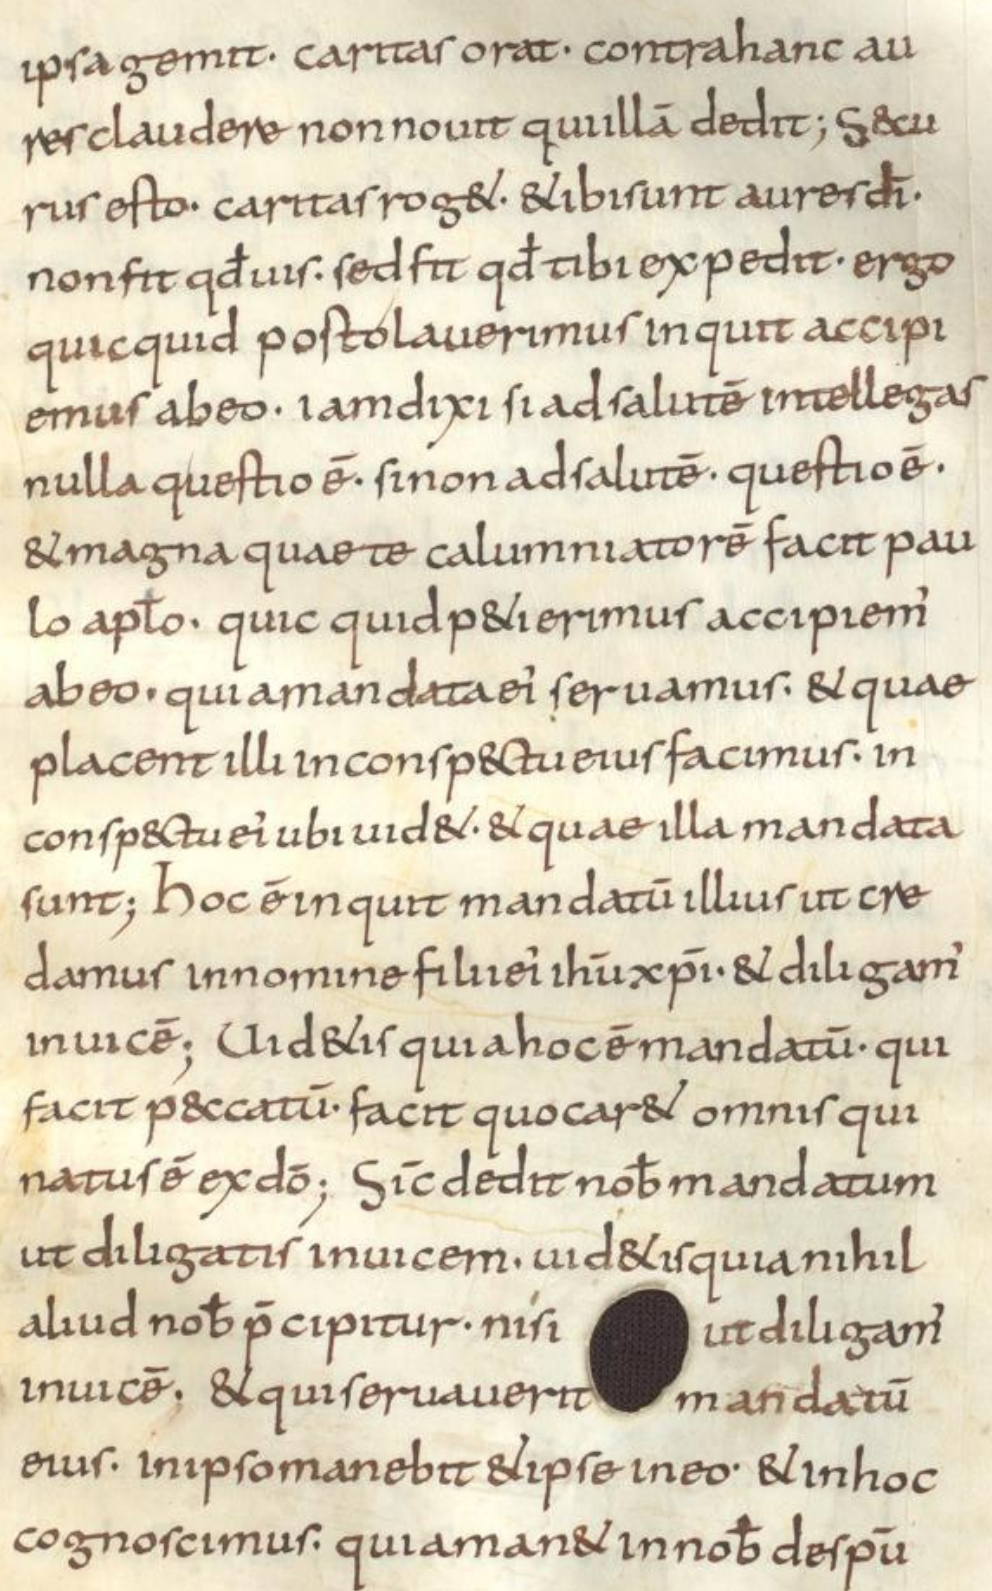 ipsa gemit· caritas orat· contra hanc au
res claudere non nouit qui illā dedit; S&cu
rus esto· caritas rog&· & ibi sunt aures dī·
non fit qđ uis· sed fit qđ tibi expedit· ergo
quicquid postolauerimus inquit accipi
emus ab eo· iam dixi si ad salutē intellegas
nulla questio ē· si non ad salutē· questio ē·
& magna quae te calumniatorē facit pau
lo apło· quic quid p&ierimus accipiem'
ab eo· quia mandata ei' seruamus· & quae
placent illi in consp&ctu eius facimus· in
consp&ctu ei' ubi uid&· & quae illa mandata
sunt; Hoc ē inquit mandatū illius ut cre
damus in nomine filii ei' ihū xpī· & diligam'
inuicē; Uid&is quia hoc ē mandatū· qui
facit p&ccatū· facit quo car& omnis qui
natus ē ex dō; Sīc dedit noƀ mandatum
ut diligatis inuicem· uid&is quia nihil
aliud noƀ p̄cipitur· nisi ut diligam'
inuicē; & qui seruauerit mandatū
eius· in ipso manebit & ipse in eo· & in hoc
cognoscimus· quia man& in noƀ de spū